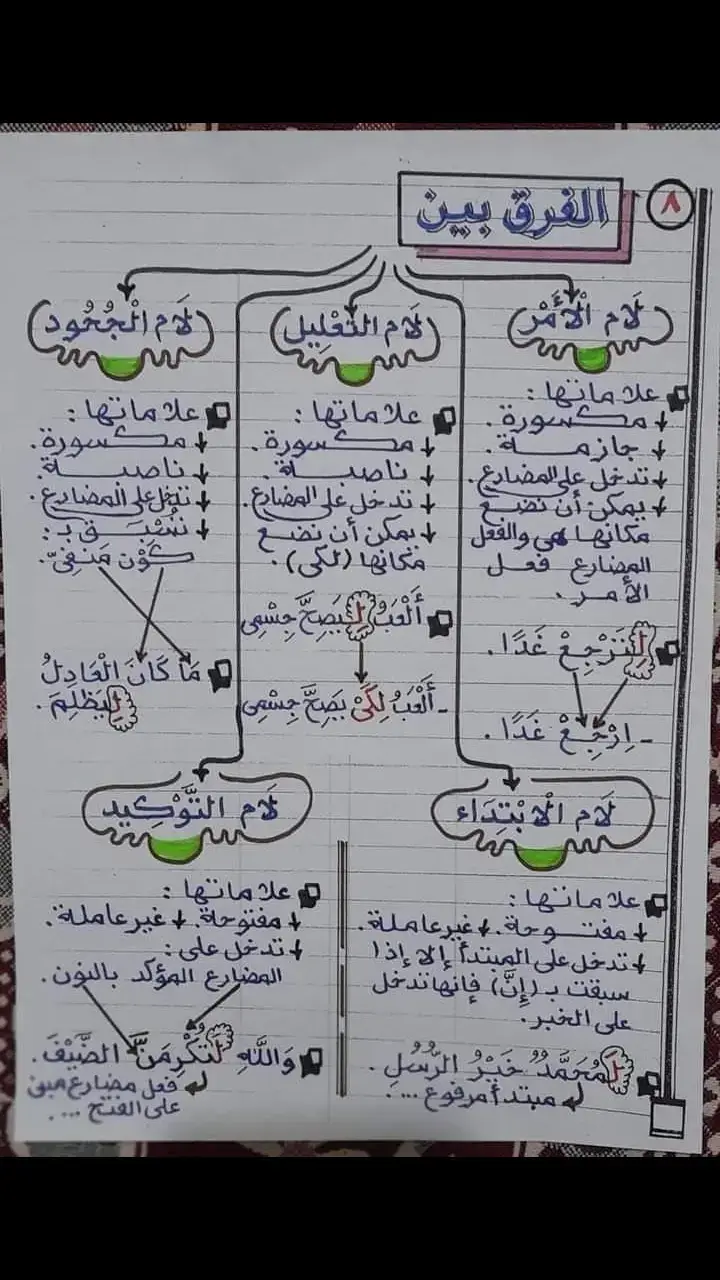 ٨
الفرق بين
لَام الْأَمْر
علاماتها:
مكسورة.
جازمة
تدخل على المضارع.
يمكن أن نضع
مكانها هي والفعل
المضارع فعل
الأمر.
لِتَرْجِعْ غَدًا.
- اِرْجِعْ غَدًا.
لَام التَّعْلِيل
علاماتها:
مكسورة.
ناصبة.
تدخل على المضارع.
يمكن أن نضع
مكانها (لكي).
أَلْعَبُ لِيَصِحَّ جِسْمِى
- أَلْعَبُ لِكَىْ يَصِحَّ جِسْمِى
لَام الْجُحُود
علاماتها:
مكسورة.
ناصبة
تدخل على المضارع.
تُسْبَق بـ:
كَوْن مَنفِىّ.
مَا كَانَ الْعَادِلُ
لِيَظْلِمَ.
لَام الْابْتِدَاء
علاماتها:
مفتوحة. غير عاملة.
تدخل على المبتدأ إلا إذا
سبقت بـ (إِنَّ) فإنها تدخل
على الخبر.
لَمُحَمَّدٌ خَيْرُ الرُّسُلِ.
مبتدأ مرفوع ...
لَام التَّوْكِيد
علاماتها:
مفتوحة. غير عاملة.
تدخل على:
المضارع المؤكد بالنون.
وَاللَّهِ لَتُكْرِمَنَّ الضَّيْفَ.
فعل مضارع مبنى
على الفتح ...